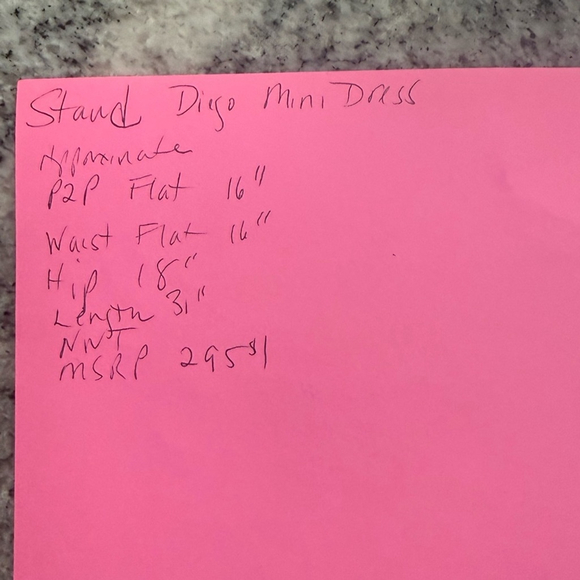 Staud Digo Mini Dress
Approximate
P2P Flat 16"
Waist Flat 16"
Hip 18"
Length 31"
NWT
MSRP 295$